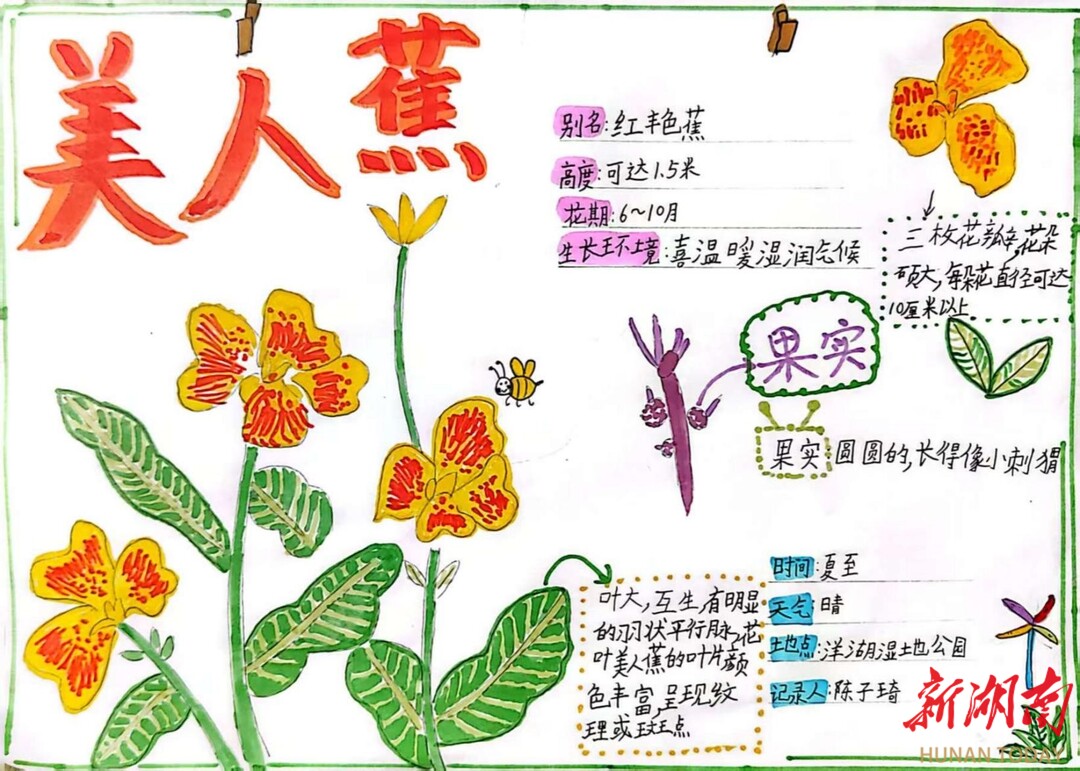 美人蕉
别名:红丰色蕉
高度:可达1.5米
花期:6~10月
生长环境:喜温暖湿润气候
三枚花瓣,花朵
硕大,每朵花直径可达
10厘米以上
果实
果实圆圆的,长得像小刺猬
叶大,互生,有明显
的羽状平行脉,花
叶美人蕉的叶片颜
色丰富,呈现纹
理或斑点
时间:夏至
天气:晴
地点:洋湖湿地公园
记录人:陈子琦
新湖南
HUNAN TODAY